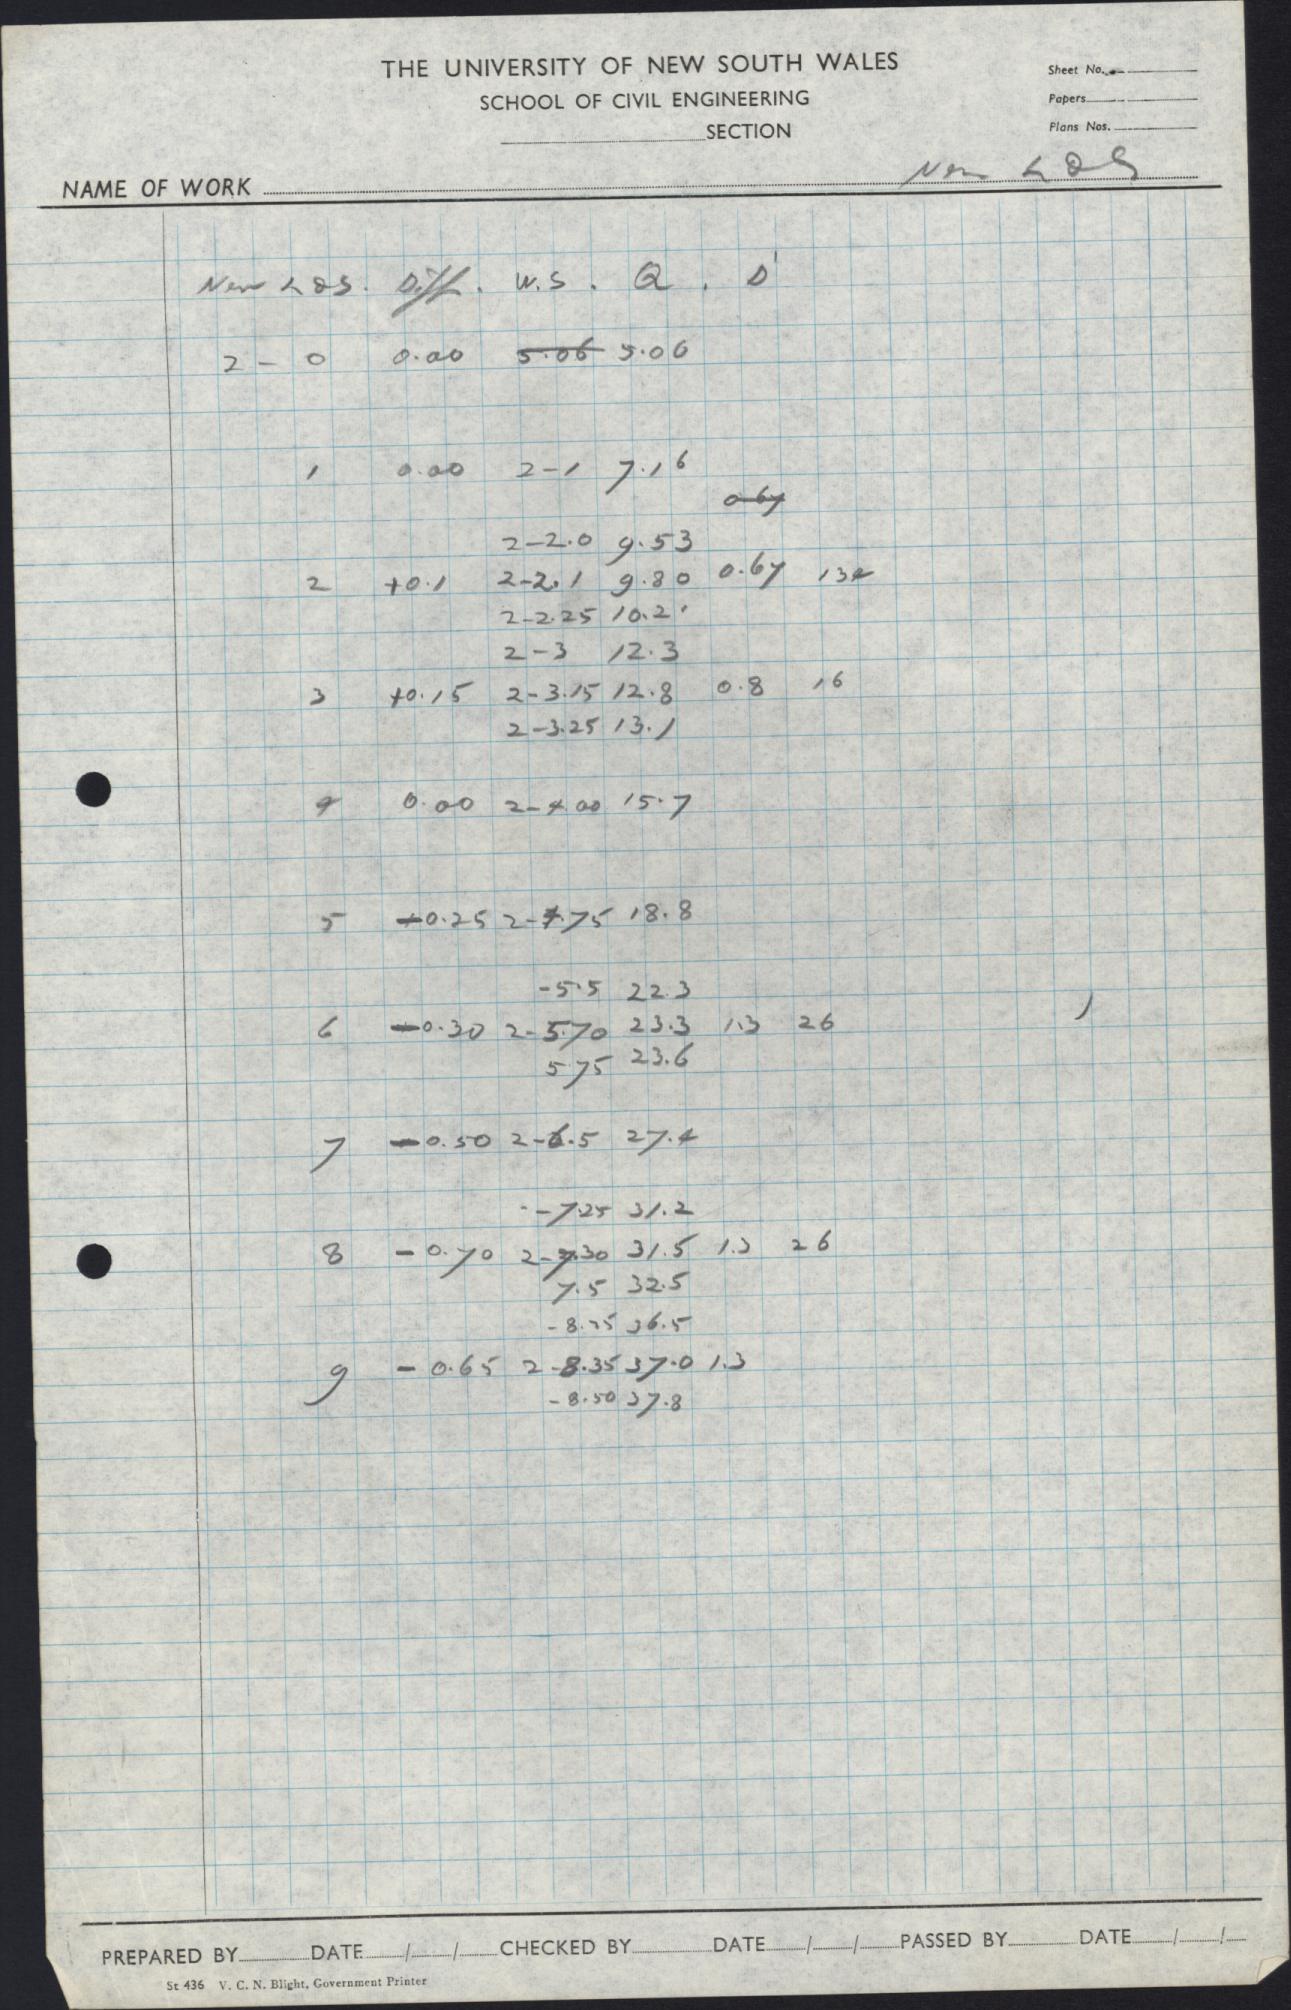 THE UNIVERSITY OF NEW SOUTH WALES
SCHOOL OF CIVIL ENGINEERING
SECTION
Sheet No.
Papers
Plans Nos.
NAME OF WORK New
New Diff. W.S. Q. D'
2 - 0 0.00 5.06 5.06
1 0.00 2-1 7.16
0.67
2-2.0 9.53
2 +0.1 2-2.1 9.80 0.67 134
2-2.25 10.2
2-3 12.3
3 +0.15 2-3.15 12.8 0.8 16
2-3.25 13.1
4 0.00 2-4.00 15.7
5 -0.25 2-4.75 18.8
-5.5 22.3
6 -0.30 2-5.70 23.3 1.3 26
5.75 23.6
7 -0.50 2-6.5 27.4
-7.25 31.2
8 -0.70 2-7.30 31.5 1.3 26
7.5 32.5
-8.25 36.5
9 -0.65 2-8.35 37.0 1.3
-8.50 37.8
PREPARED BY DATE / / CHECKED BY DATE / / PASSED BY DATE / /
St 436 V. C. N. Blight, Government Printer